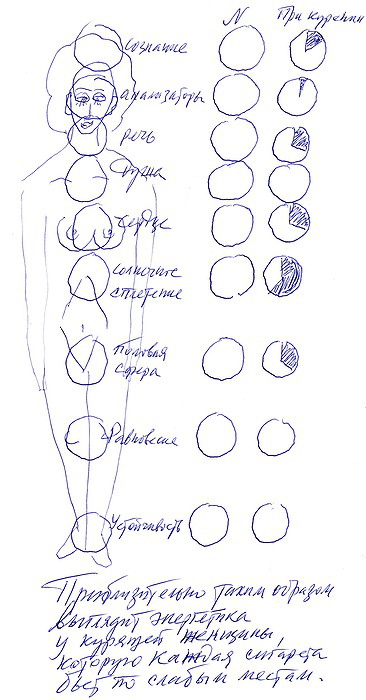 N При курении
сознание
анализаторы
речь
сердце
солнечное
сплетение
Половая
сфера
Равновесие
Устойчивость
Приблизительно таким образом
выглядит энергетика
у курящей женщины,
которую каждая сигарета
бьёт по слабым местам.